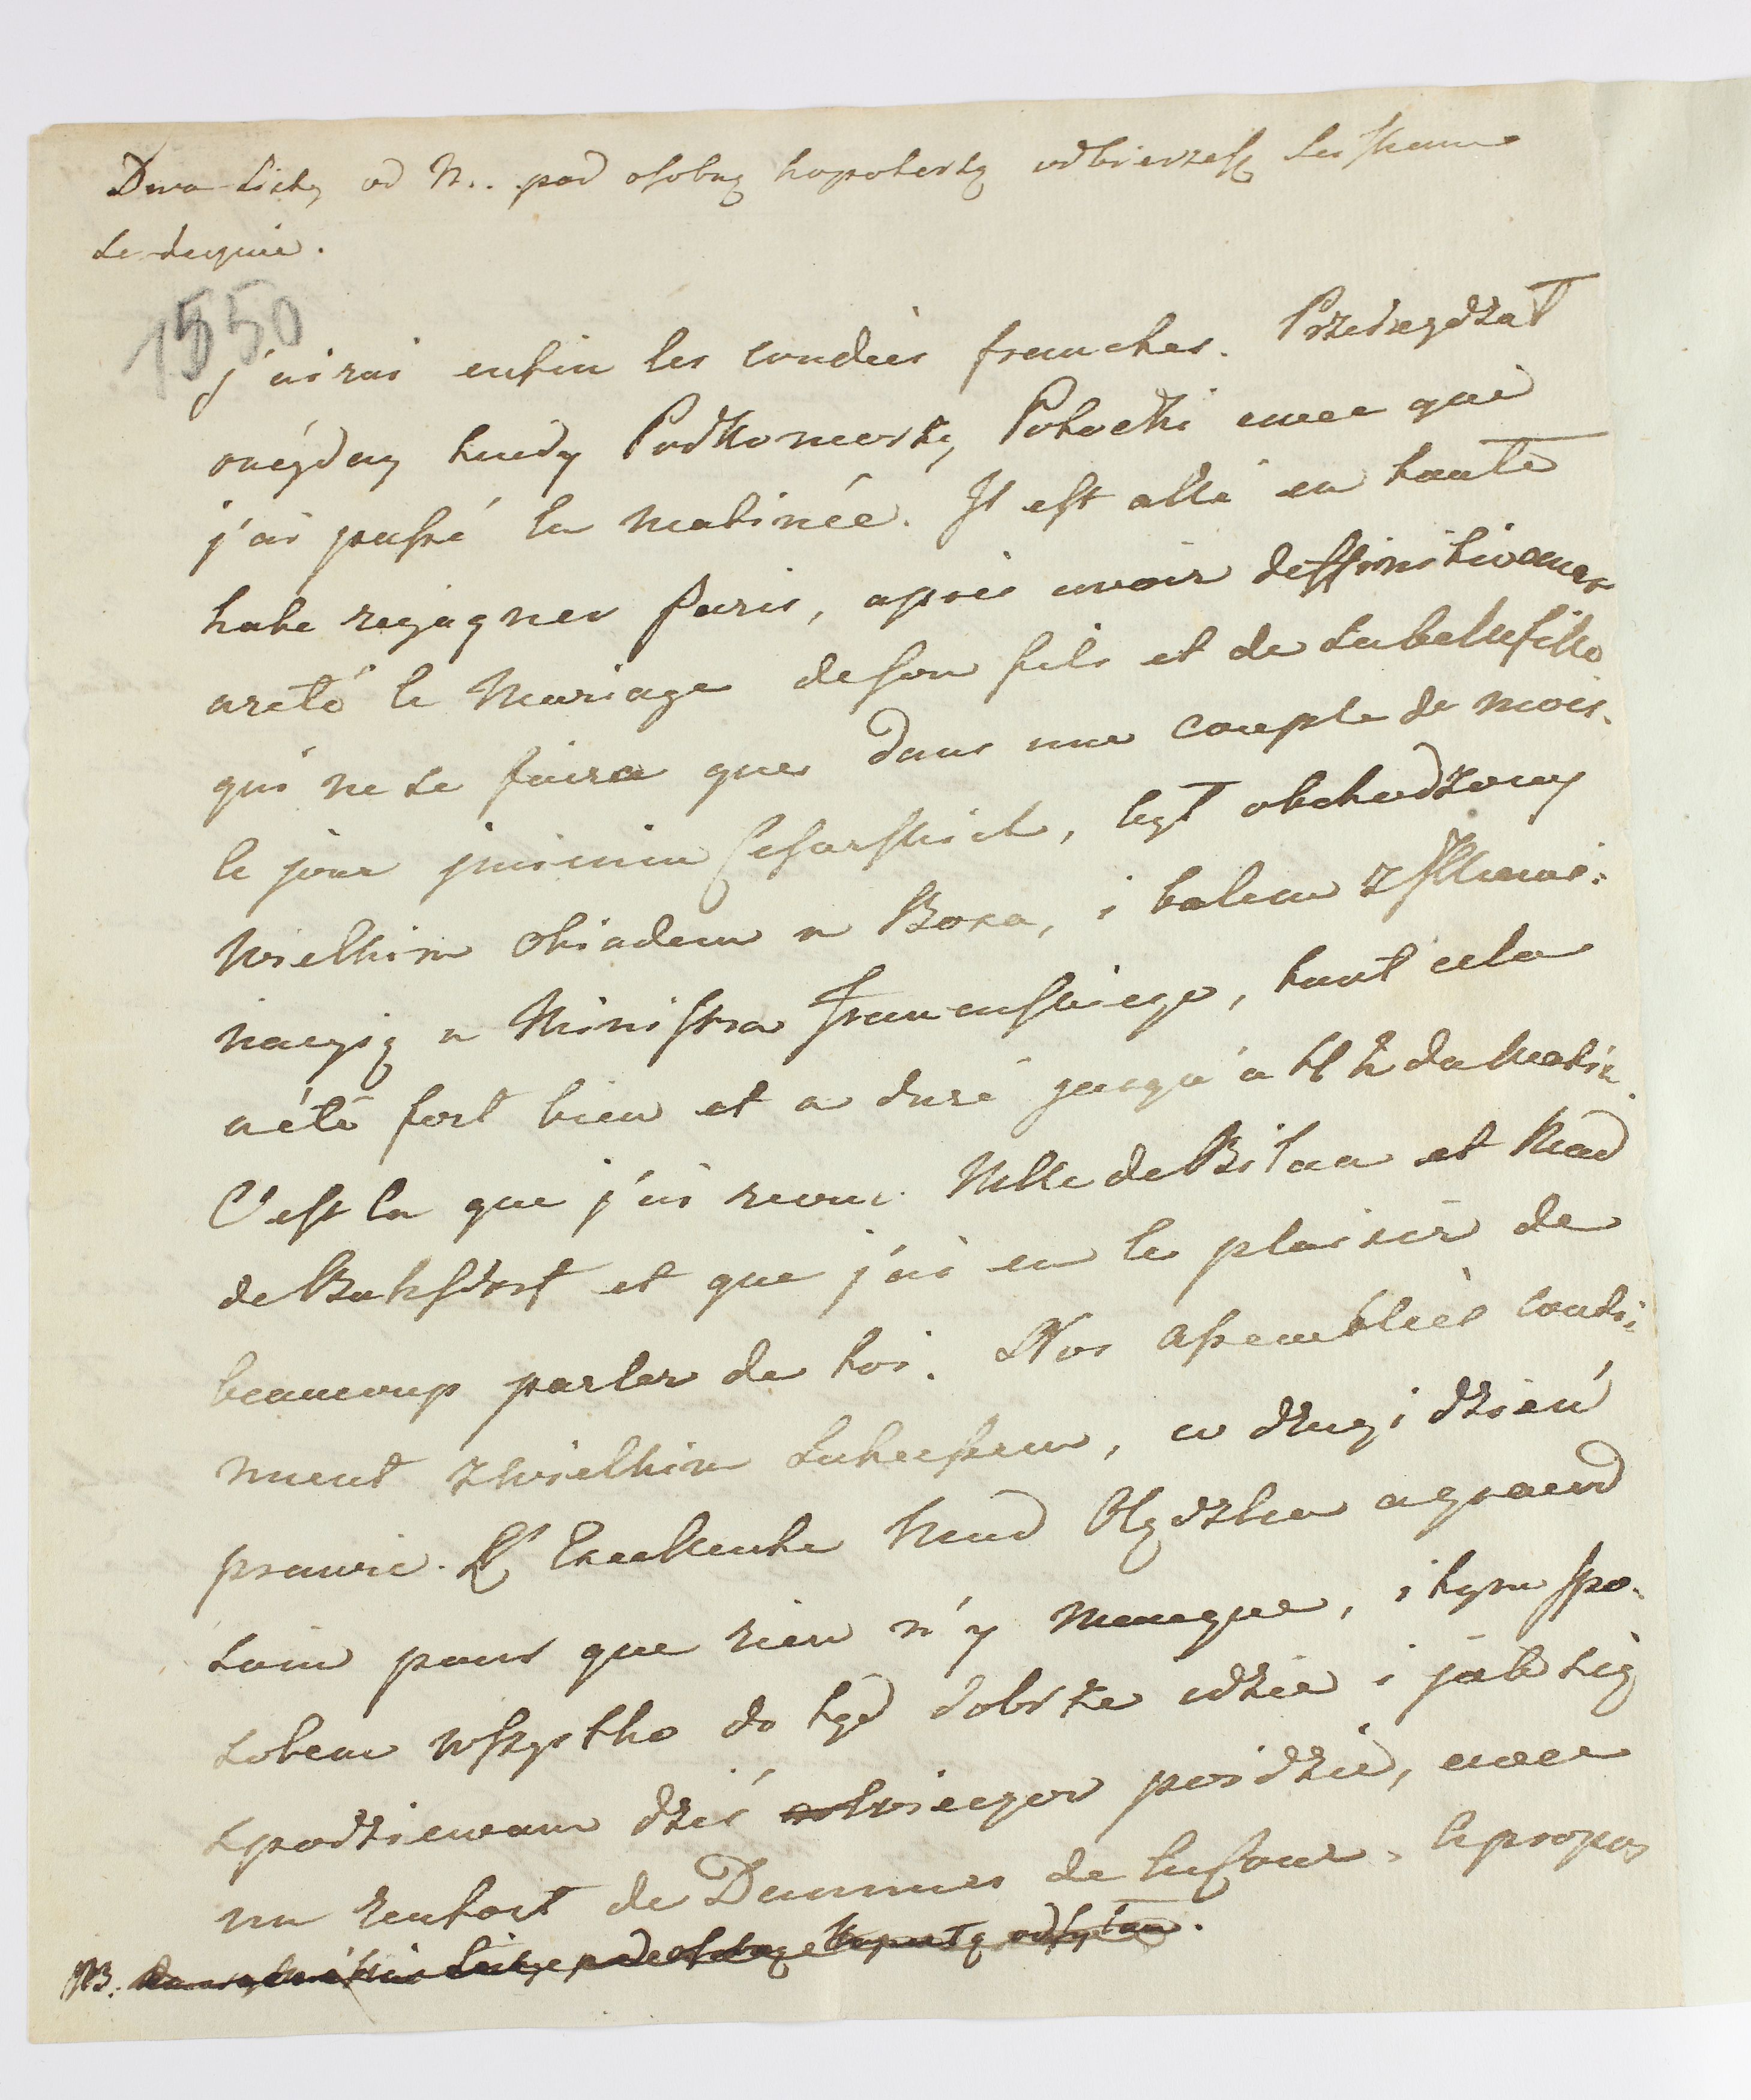 Dwa Listy od N.. pod osobną kopoKertą odbierzesz
Le-même.
1550
j'airai enfin les coudées franches. Przeiezdzał
onégday tędy Podkomorzy Potocki avec qui
j'ai passé la matinée. Il est allé en toute
hate regagner Paris, aprés avoir deffinitivement
areté le Mariage de son fils et de sa bellefille
qui ne se faira que dans une couple de mois.
le jour jmienin Cesarskich, był obchodzony
Wielkim obiadem u Boza, i balem z Jllumi:
nacyią u Ministra Francuskiego, tout cela
a été fort bien et a duré jusqu'a 4 h du Matin.
C'est la que j'ai revu Mlle de et Mad
de et que j'ai eu le plaisir de
beaucoup parler de toi. Nos assemblées conti:
nuent z Wielkim Sukcessem, co drugi dzień
prawie. L'Excellente Mad a grand
soin pour que rien n'y manque, i tym spo:
sobem wszystko do tąd dobrze idzie i jak się
spodziewam dziś wieczor poidzie, avec
un renfort de Dammes de la Cour. Apropos
NB.